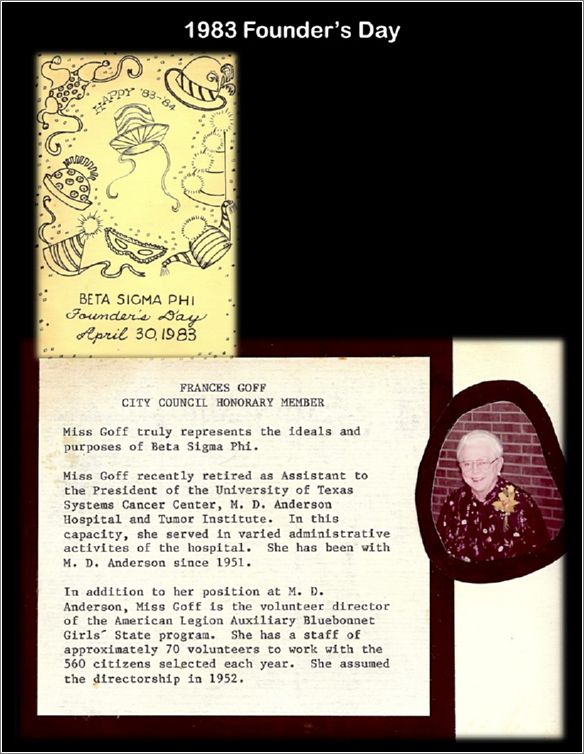 1983 Founder's Day
HAPPY '83-'84
BETA SIGMA PHI
Founder's Day
April 30, 1983
FRANCES GOFF
CITY COUNCIL HONORARY MEMBER
Miss Goff truly represents the ideals and
purposes of Beta Sigma Phi.
Miss Goff recently retired as Assistant to
the President of the University of Texas
Systems Cancer Center, M. D. Anderson
Hospital and Tumor Institute.  In this
capacity, she served in varied administrative
activites of the hospital.  She has been with
M. D. Anderson since 1951.
In addition to her position at M. D.
Anderson, Miss Goff is the volunteer director
of the American Legion Auxiliary Bluebonnet
Girls´ State program.  She has a staff of
approximately 70 volunteers to work with the
560 citizens selected each year.  She assumed
the directorship in 1952.